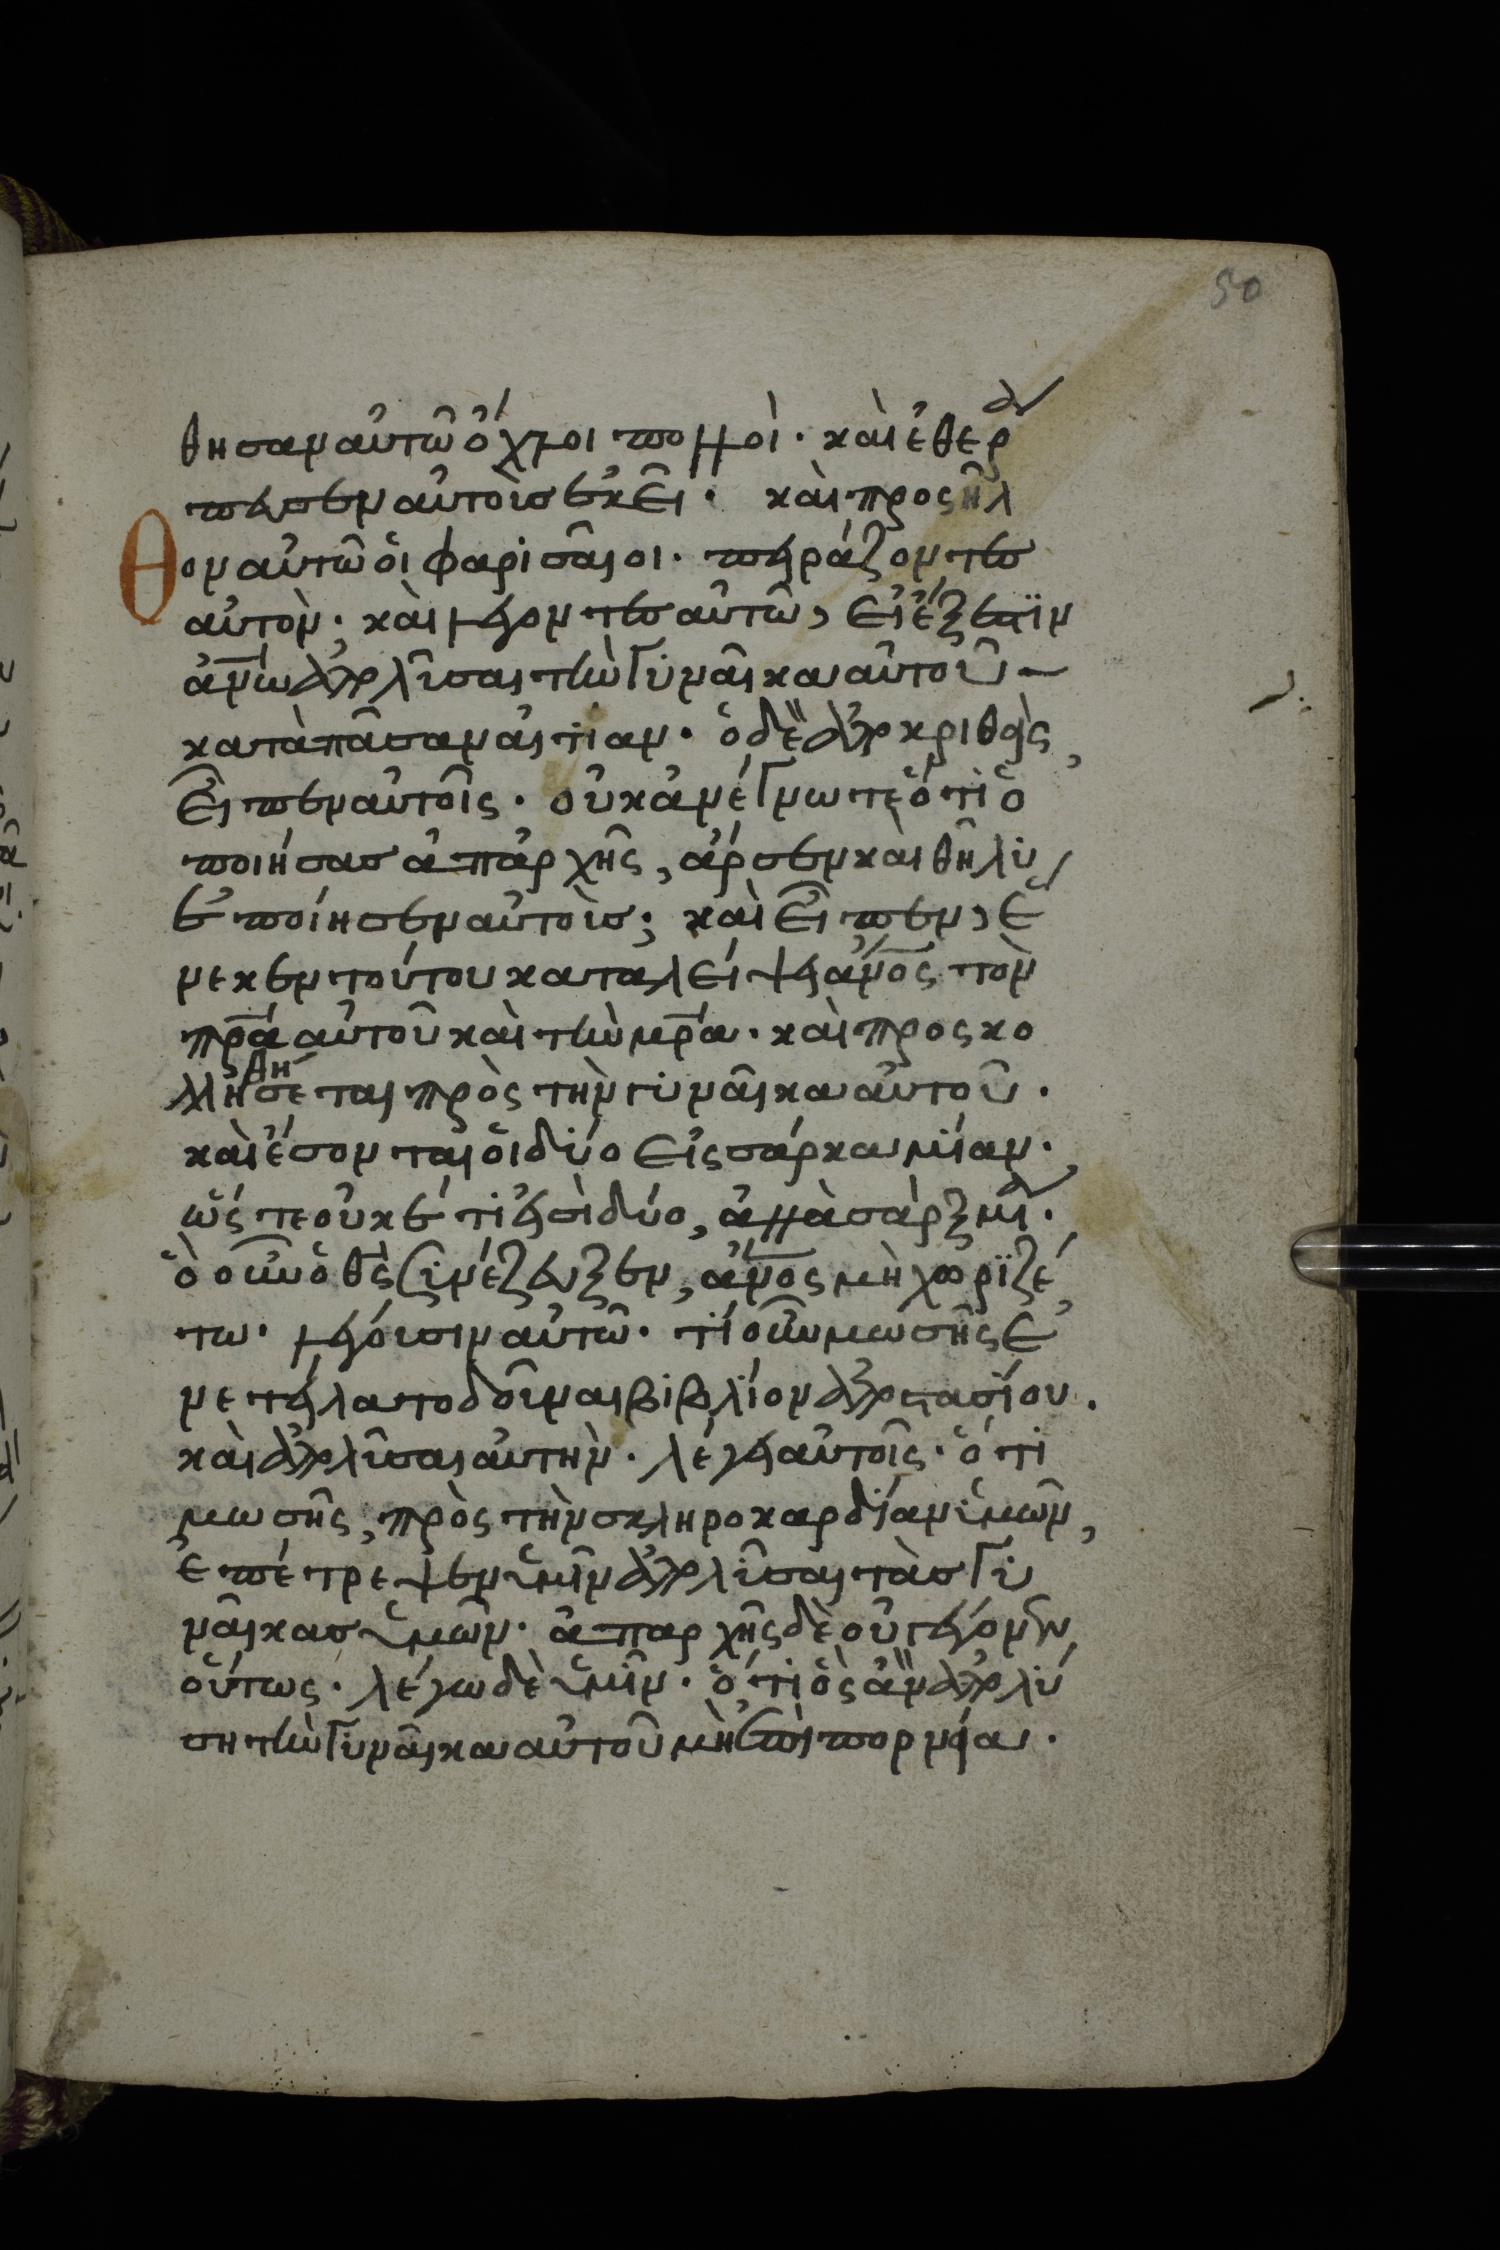 50
θησαν αὐτῶ ὄχλοι πολλοὶ· καὶ ἐθερ
πευσεν αὐτοὺσ ἐκεῖ· καὶ προςῆλ
Θον αὐτῶ οἱ φαρισαῖοι. πειράζοντεσ
αὐτὸν· καὶ λέγοντεσ αὐτῶ, εἰ ἔξεστϊν
ἀνω ἀπολῦσαι τὴν γυναῖκα αὐτοῦ
κατὰ πᾶσαν αἰτίαν· ὁ δὲ ἀποκριθεὶς,
εἶπεν αὐτοῖς· οὐκ ἀνέγνωτε ὅτι ὁ
ποιήσασ ἀπ' ἀρχῆς, ἄρσεν καὶ θῆλυ
ἐποίησεν αὐτοὺσ; καὶ εἶπεν, ἕ
νεκεν τούτου καταλείψει ἀνος τὸν
πρα αὐτοῦ καὶ τὴν μρα· καὶ προςκο
λληθήσεται πρὸς τὴν γυναῖκα αὐτοῦ·
καὶ ἔσονται οἱ δύο εἰς σάρκα μίαν·
ὥςτε οὐκέτι εἰσὶ δύο, ἀλλὰ σὰρξ μία·
ὃ οὖν ὁ θς συνέζευξεν, ἀνος μὴ χωρϊζέ
τω· λέγουσιν αὐτῶ· τί οὖν μωσῆς ἐ
νετείλατο δοῦναι βιβλίον ἀποστασίου.
καὶ ἀπολῦσαι αὐτὴν· λέγει αὐτοῖς· ὅτι
μωσῆς, πρὸς τὴν σκληροκαρδίαν ὑμῶν,
ἐπέτρεψεν ὑμῖν ἀπολῦσαι τὰσ γυ
ναῖκασ ὑμῶν· ἀπ' ἀρχῆς δὲ οὐ γέγονεν
οὕτως· λέγω δὲ ὑμῖν· ὅτι ὃς ἂν ἀπολύ
ση τὴν γυναῖκα αὐτοῦ μὴ ἐπὶ πορνεία·